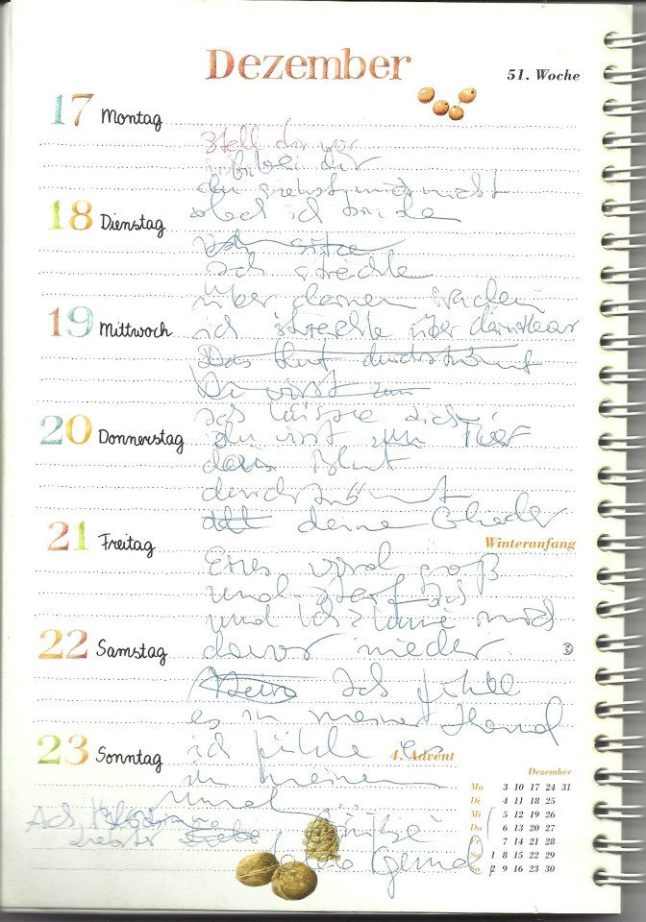 Dezember
51. Woche
17 Montag
Stell dir vor
ich bin bei dir
du siehst mich nicht
aber ich bin da
18 Dienstag
Ich sitze
Ich streichle
über deinen Rücken
19 Mittwoch
ich streichle über dein Haar
Das Blut durchströmt
Du wirst zum
Ich küsse dich
20 Donnerstag
du wirst zum Tier
dein Blut
durchströmt
deine Glieder
21 Freitag
Winteranfang
Eines wird groß
und steif
und ich mich
22 Samstag
davor nieder
Ich fühle
es in meiner Hand
23 Sonntag
ich fühle es
4. Advent
in meinem
Mund
Ach
Liebster
Dezember
Mo 3 10 17 24 31
Di 4 11 18 25
Mi 5 12 19 26
Do 6 13 20 27
Fr 7 14 21 28
Sa 1 8 15 22 29
So 2 9 16 23 30